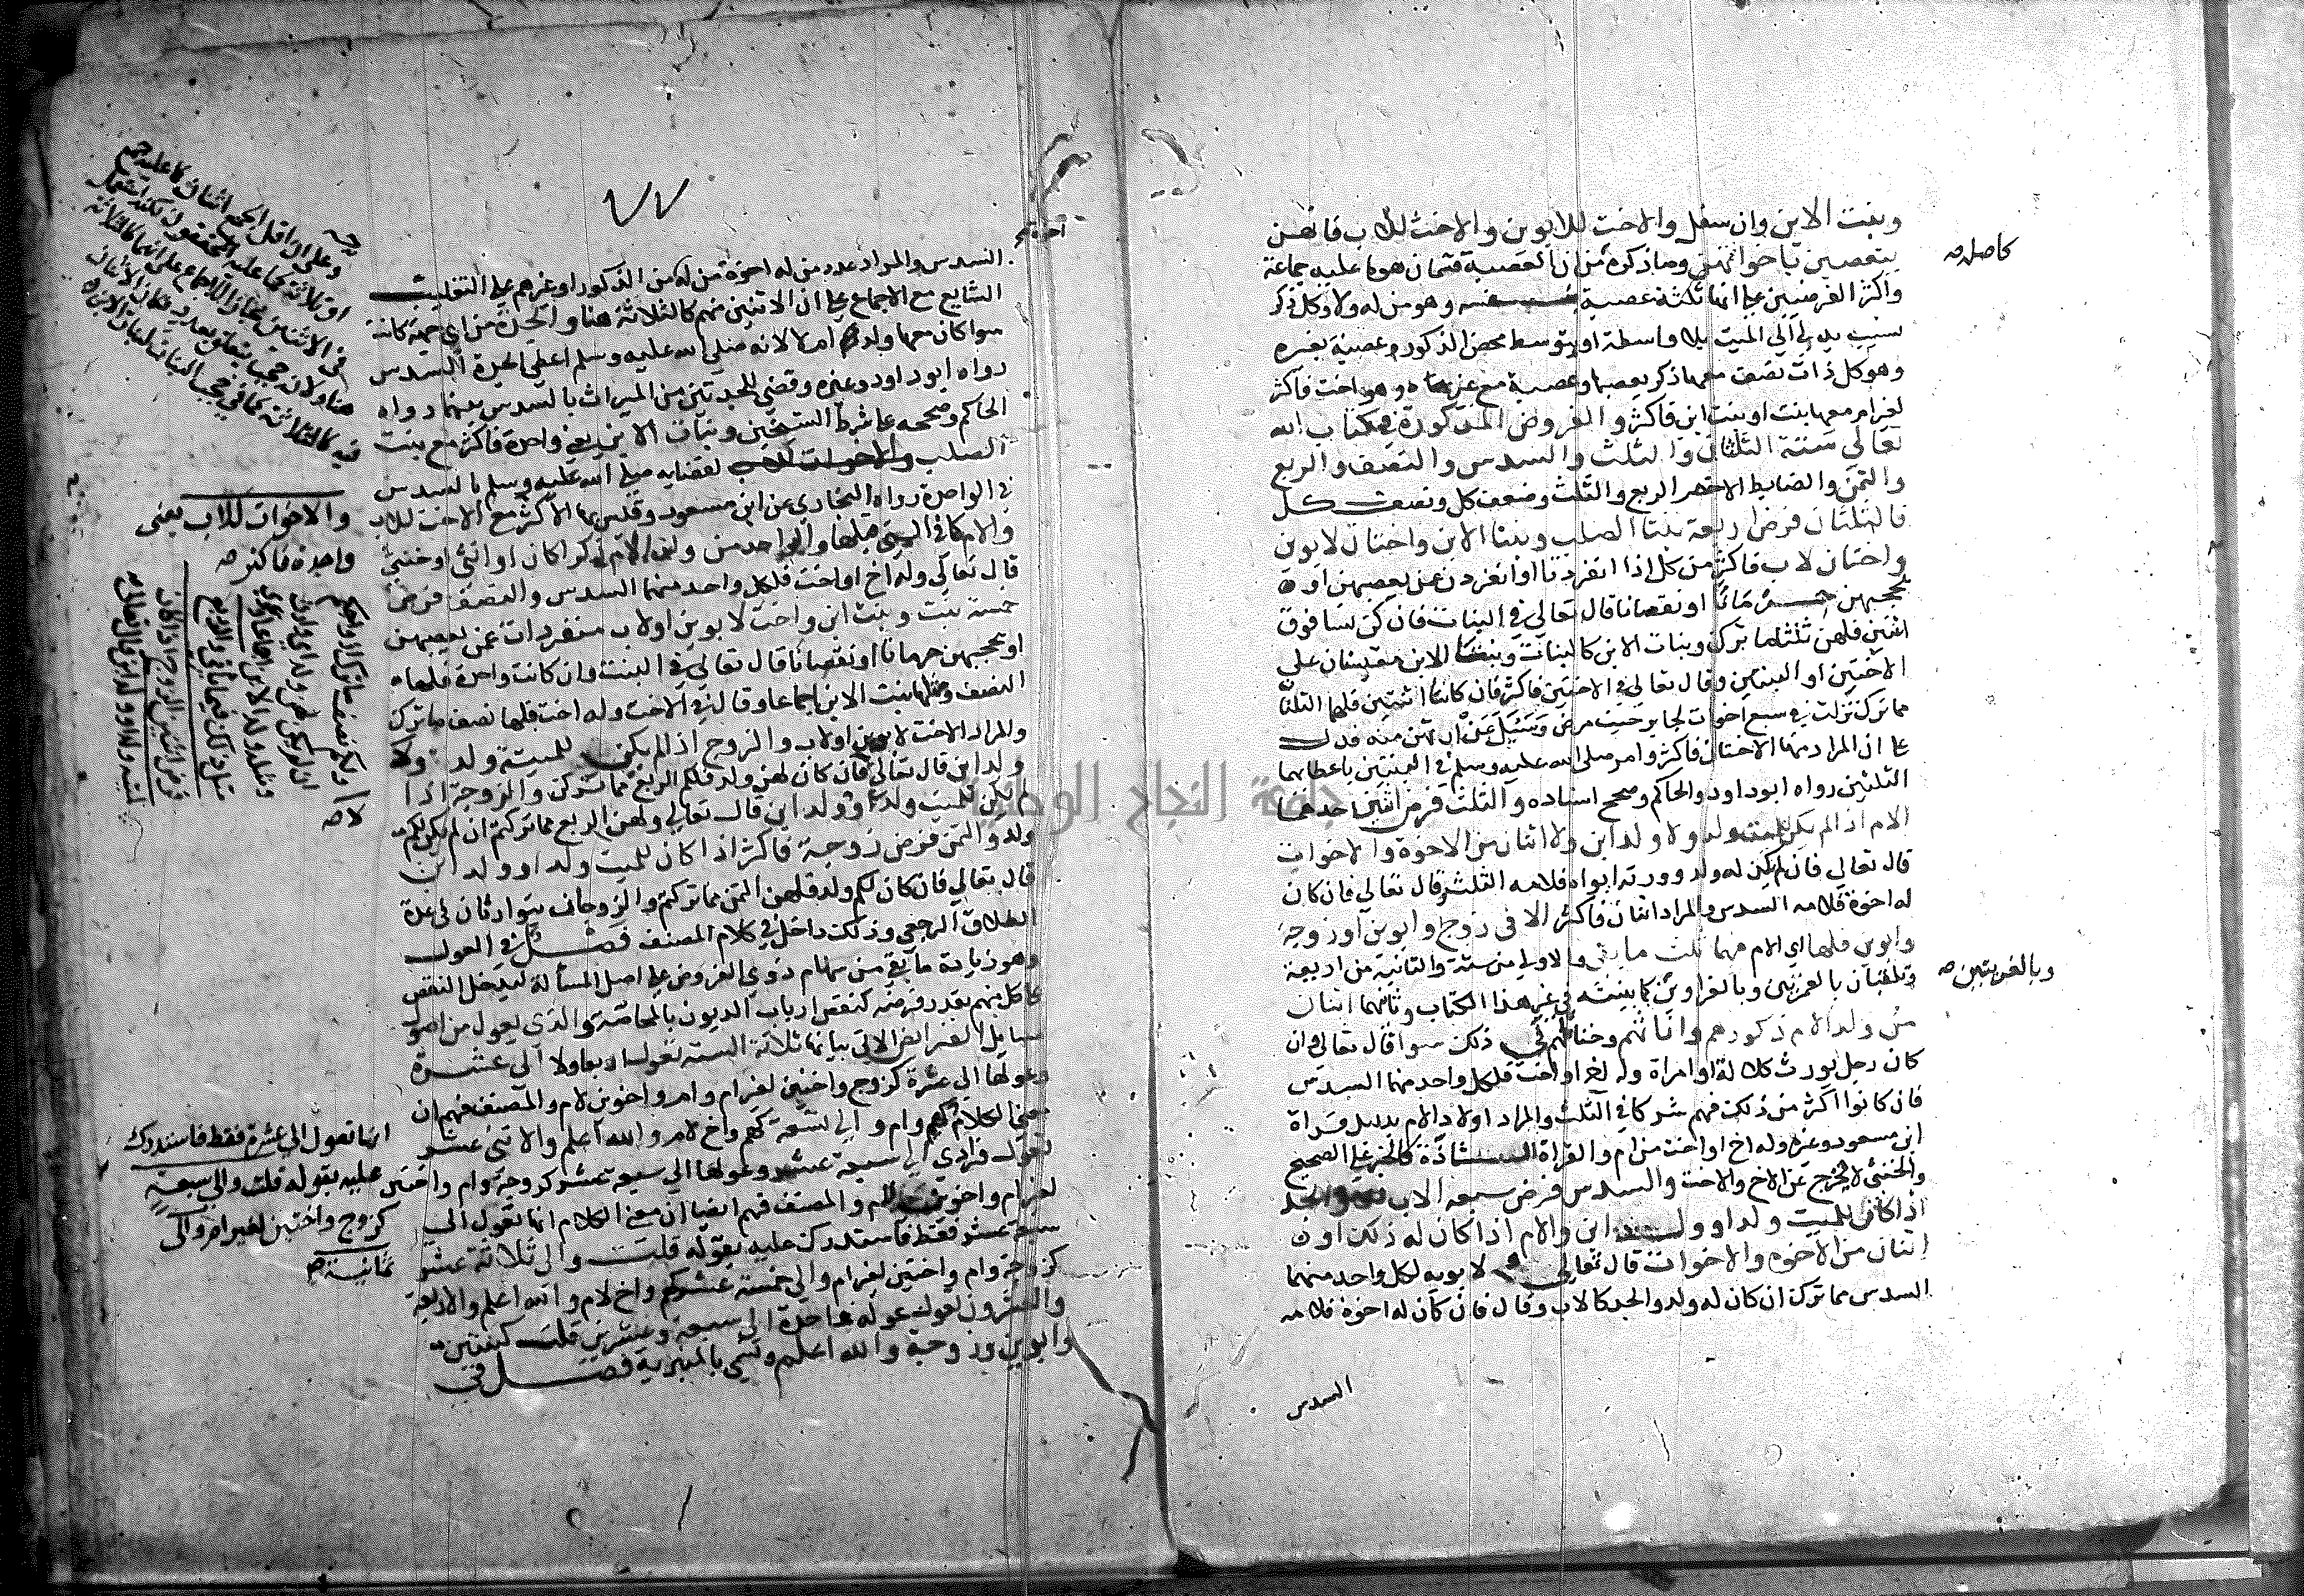 وبنت الابن وان سفل والاخت للابوين والاخت للاب فانهن
يتعصبن باخواتهن وما ذكره من ان العصبة قسمان هو ما عليه جماعة
كاصله صح
واكثر الفرضيين على انها ثلاثة عصبة بنفسه وهو من له ولا وكل ذكر
نسيب يدلي الى الميت بلا واسطة او بتوسط محض الذكور وعصبة بغيره
وهو كل ذات نصف معها ذكر يعصبها وعصبة مع غيرها وهو اخت فاكثر
لغير ام معها بنت او بنت ابن فاكثر والفروض المذكورة في كتاب الله
تعالى ستة الثلثان والثلث والسدس والنصف والربع
والثمن والضابط الاخصر الربع والثلث وضعف كل ونصف كل
فالثلثان فرض اربعة بنتا الصلب وبنتا الابن واختان لابوين
واختان لاب فاكثر من كل اذا انفردتا او انفردن عمن يعصبهن او
يحجبهن حرمانا او نقصانا قال تعالى في البنات فان كن نسا فوق
اثنتين فلهن ثلثا ما ترك وبنات الابن كالبنات وبنتا الابن مقيستان على
الاختين او البنتين وقال تعالى في الاختين فاكثر فان كانتا اثنتين فلهما الثلثان
مما ترك نزلت في سبع اخوات لجابر حين مرض وسئل عن ارثهن منه فدل
على ان المراد منها الاختان فاكثر وامر صلى الله عليه وسلم في البنتين باعطائهما
الثلثين رواه ابو داود والحاكم وصحح اسناده والثلث فرض اثنين احدهما
الام اذا لم يكن للميت ولد ولا ولد ابن ولا اثنان من الاخوة والاخوات
قال تعالى فان لم يكن له ولد وورثه ابواه فلامه الثلث وقال تعالى فان كان
له اخوة فلامه السدس والمراد اثنان فاكثر الا في زوج وابوين او زوجة
وابوين فلها اي الام منهما ثلث ما بقي والاولى من ستة والثانية من اربعة
وتلقبان بالعمريتين وبالغراوين كما بينته في غير هذا الكتاب وثانيهما اثنان
وبالغريبتين صح
من ولد الام ذكورهم واناثهم وخناثهم في ذلك سوا قال تعالى وان
كان رجل يورث كلالة او امراة وله اخ او اخت فلكل واحد منهما السدس
فان كانوا اكثر من ذلك فهم شركا في الثلث والمراد اولاد الام بدليل قراة
ابن مسعود وغيره وله اخ او اخت من ام والقراة الشاذة كالخبر على الصحيح
والخنثى لا يخرج عن الاخ والاخت والسدس فرض سبعة الاب والجد
اذا كان للميت ولد او ولد ابن والام اذا كان له ذلك او
اثنان من الاخوة والاخوات قال تعالى ولابويه لكل واحد منهما
السدس مما ترك ان كان له ولد والجد كالاب وقال فان كان له اخوة فلامه
السدس
٧٧
السدس والمراد عدد من له اخوة من الذكور او غيرهم على التغليب
الشايع مع الاجماع على ان الاثنين منهم كالثلاثة هنا والجدة من اي جهة كانت
سوا كان معها ولد ام لا لانه صلى الله عليه وسلم اعطى الجدة السدس
رواه ابو داود وغيره وقضى للجدتين من الميراث بالسدس بينهما رواه
الحاكم وصححه على شرط الشيخين وبنات الابن يعني واحدة فاكثر مع بنت
الصلب لقضايه صلى الله عليه وسلم بالسدس
في الواحدة رواه البخاري عن ابن مسعود وقيس بها الاكثر مع الاخت للاب
والام كما في التي قبلها والواحد من ولد الام ذكرا كان او انثى او خنثى
قال تعالى وله اخ او اخت فلكل واحد منهما السدس والنصف فرض
خمسة بنت وبنت ابن واخت لابوين او لاب منفردات عمن يعصبهن
او يحجبهن حرمانا او نقصانا قال تعالى في البنت وان كانت واحدة فلها
النصف ومثلها بنت الابن اجماعا وقال في الاخت وله اخت فلها نصف ما ترك
والمراد الاخت لابوين او لاب والزوج اذا لم يكن للميتة ولد ولا
ولد ابن قال تعالى فان كان لهن ولد فلكم الربع مما تركن والزوجة اذا
لم يكن للميت ولد او ولد ابن قال تعالى ولهن الربع مما تركتم ان لم يكن لكم
ولد والثمن فرض زوجة فاكثر اذا كان للميت ولد او ولد ابن
قال تعالى فان كان لكم ولد فلهن الثمن مما تركتم والزوجان يتوارثان في عدة
الطلاق الرجعي وذلك داخل في كلام المصنف فصل في العول
وهو زيادة ما بقي من سهام ذوي الفروض على اصل المسألة ليدخل النقص
على كل منهم بقدر فرضه كنقص ارباب الديون بالمحاصة والذي يعول من اصول
مسايل الفرائض الاتي بيانها ثلاثة الستة تعول اربعا ولا الى عشرة
وعولها الى عشرة كزوج واختين لغير ام وام واخوين لام والمصنف فهم ان
معنى الكلام كهم وام والى تسعة كهم واخ لام والله اعلم والاثنى عشر
تعول فرادى الى سبعة عشر وعولها الى سبعة عشر كزوجة وام واختين
لغير ام واخوين لام والمصنف فهم ايضا ان معنى الكلام انها تعول الى
سبعة عشر فقط فاستدرك عليه بقوله قلت والى ثلاثة عشر
كزوجة وام واختين لغير ام والى خمسة عشر كهم واخ لام والله اعلم والاربعة
والعشرون تعول عولة واحدة الى سبعة وعشرين قلت كبنتين
وابوين وزوجة والله اعلم وتسمى بالمنبرية فصل في
وعلى ان اقل الجمع اثنان كما عليه جمع
او ثلاثة كما عليه المحققون لكنه استعمل
في الاثنين مجازا للاجماع على انهما كالثلاثة
هنا ولانه حجب يتعلق بعدد فكان الاثنان
فيه كالثلاثة كما في حجب البنات لبنات الابن
والاخوات للاب يعني
واحدة فاكثر صح
قال تعالى ولكم نصف ما ترك ازواجكم
ان لم يكن لهن ولد
ومثله ولد الابن اجماعا
والربع
فرض اثنين الزوج اذا كان
لزوجته ولد او ولد ابن قال تعالى
انها تعول الى عشرة فقط فاستدرك
عليه بقوله قلت والى سبعة
كزوج واختين لغير ام والى
ثمانية صح
جامعة النجاح الوطنية